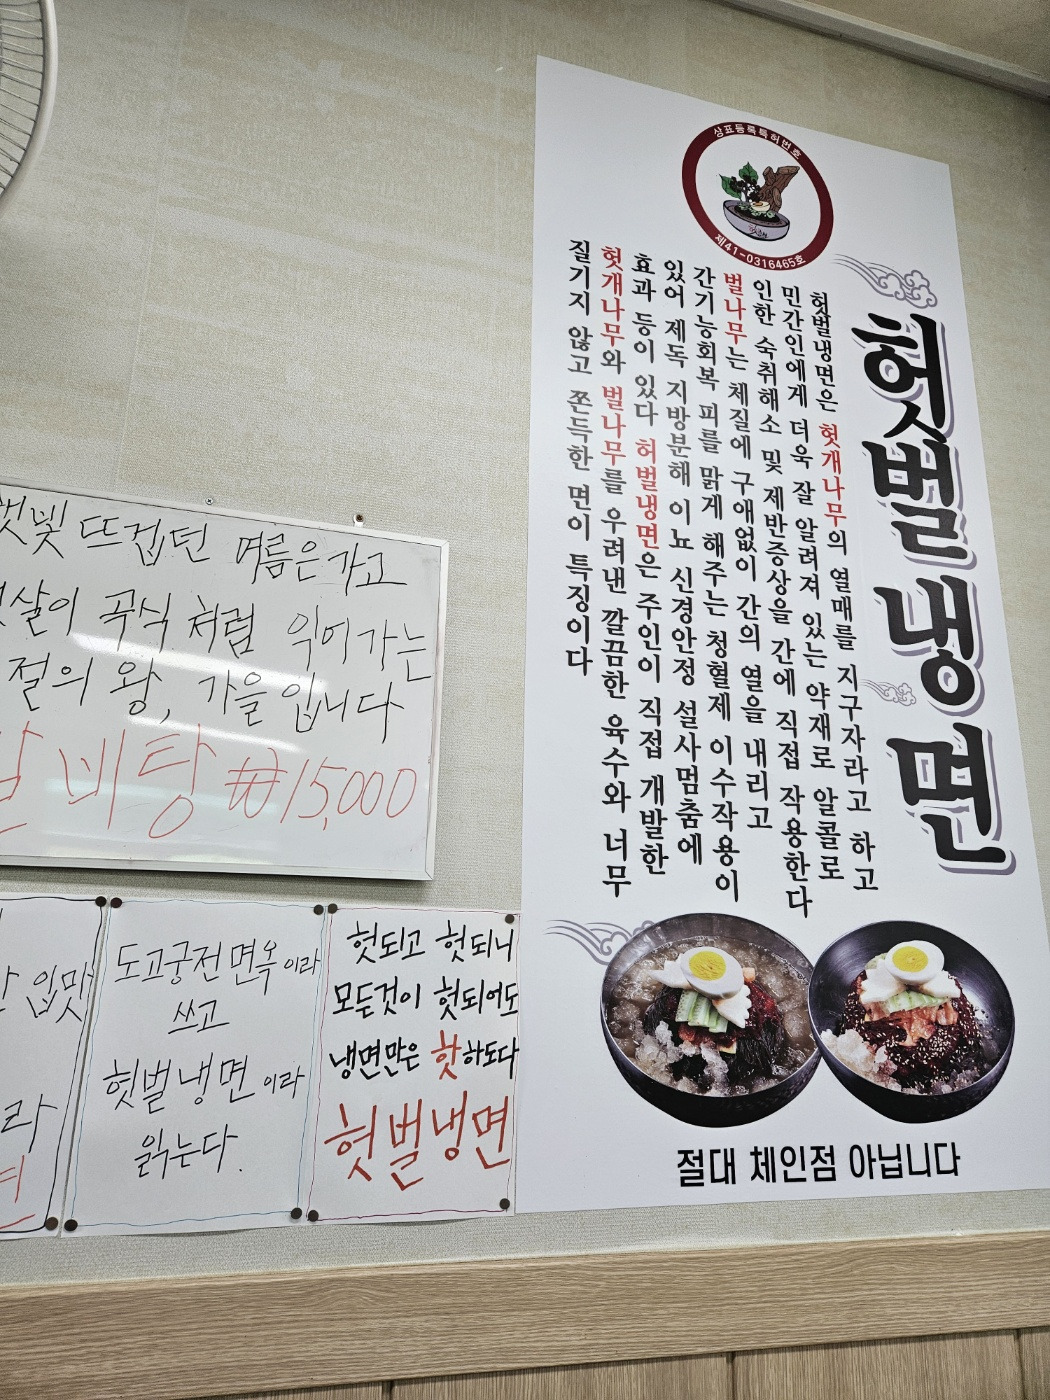 상표등록특허번호
제41-0316465호
헛벌냉면
헛벌냉면은 헛개나무의 열매를 지구자라고 하고
민간인에게 더욱 잘 알려져 있는 약재로 알콜로
인한 숙취해소 및 제반증상을 간에 직접 작용한다
벌나무는 체질에 구애없이 간의 열을 내리고
간기능회복 피를 맑게 해주는 청혈제 이수작용이
있어 제독 지방분해 이뇨 신경안정 설사멈춤에
효과 등이 있다 허벌냉면은 주인이 직접 개발한
헛개나무와 벌나무를 우려낸 깔끔한 육수와 너무
질기지 않고 쫀득한 면이 특징이다
절대 체인점 아닙니다
햇빛 뜨겁던 여름은가고
햇살이 곡식처럼 익어가는
절의 왕, 가을입니다
비탕 ₩15,000
입맛
라
도고궁전면옥이라
쓰고
헛벌냉면이라
읽는다.
헛되고 헛되니
모든것이 헛되어도
냉면만은 핫하도다
헛벌냉면